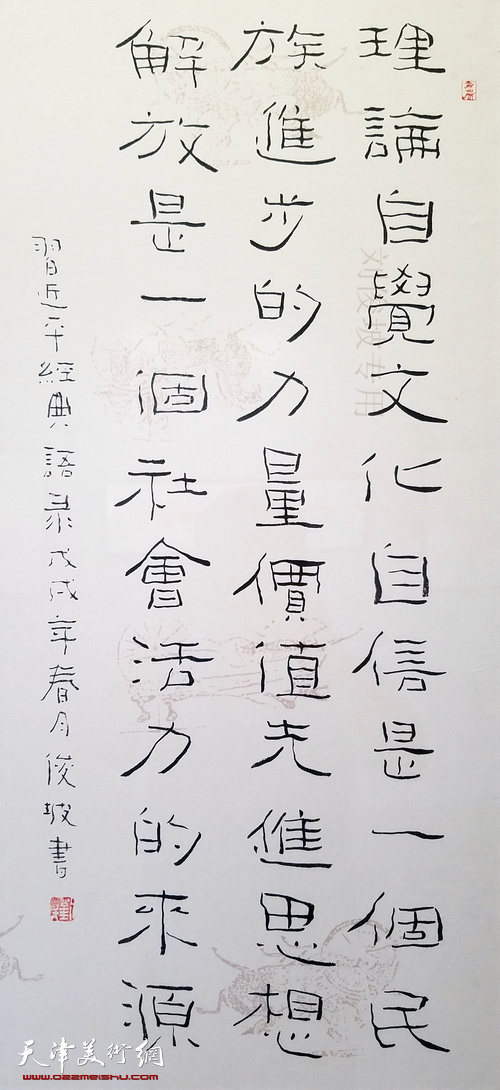 理論自覺文化自信是一個民
族進步的力量價值先進思想
解放是一個社會活力的來源
習近平經典語录戊戌年春月俊坡書
刘俊坡专用
天津美術網
www.022meishu.com